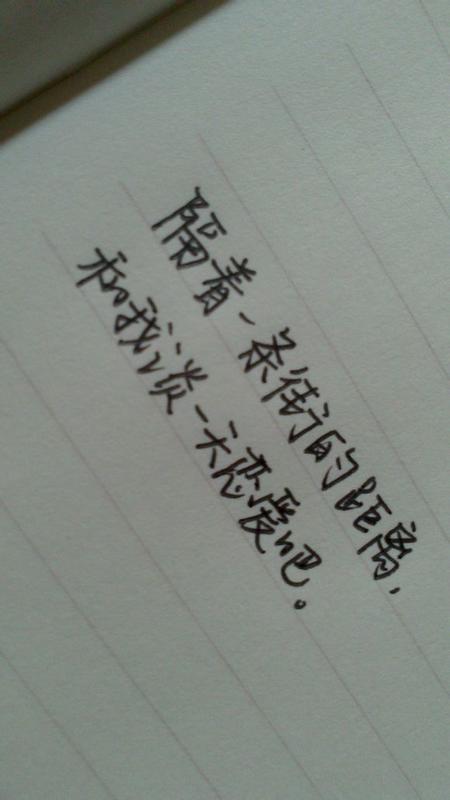 隔着一条街的距离,
和我谈一天恋爱吧。